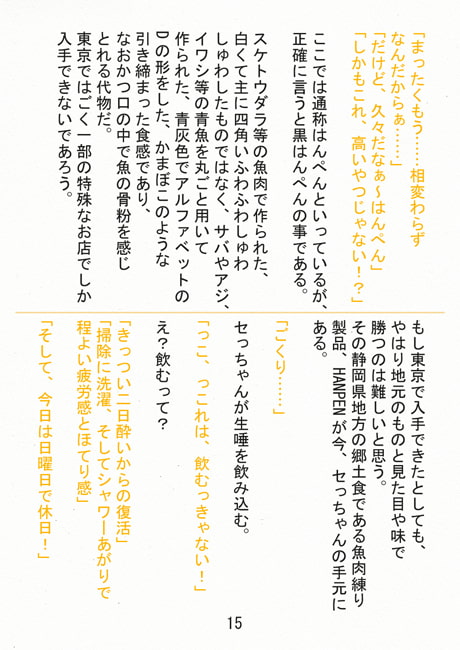 「まったくもう……相変わらず
なんだからぁ……」
「だけど、久々だなぁ～はんぺん」
「しかもこれ、高いやつじゃない！？」
ここでは通称はんぺんといっているが、
正確に言うと黒はんぺんの事である。
スケトウダラ等の魚肉で作られた、
白くて主に四角いふわふわしゅわ
しゅわしたものではなく、サバやアジ、
イワシ等の青魚を丸ごと用いて
作られた、青灰色でアルファベットの
Dの形をした、かまぼこのような
引き締まった食感であり、
なおかつ口の中で魚の骨粉を感じ
とれる代物だ。
東京ではごく一部の特殊なお店でしか
入手できないであろう。
もし東京で入手できたとしても、
やはり地元のものと見た目や味で
勝つのは難しいと思う。
その静岡県地方の郷土食である魚肉練り
製品、HANPENが今、せっちゃんの手元に
ある。
「ごくり……」
せっちゃんが生唾を飲み込む。
「っこ、っこれは、飲むっきゃない！」
え？飲むって？
「きっつい二日酔いからの復活」
「掃除に洗濯、そしてシャワーあがりで
程よい疲労感とほてり感」
「そして、今日は日曜日で休日！」
15